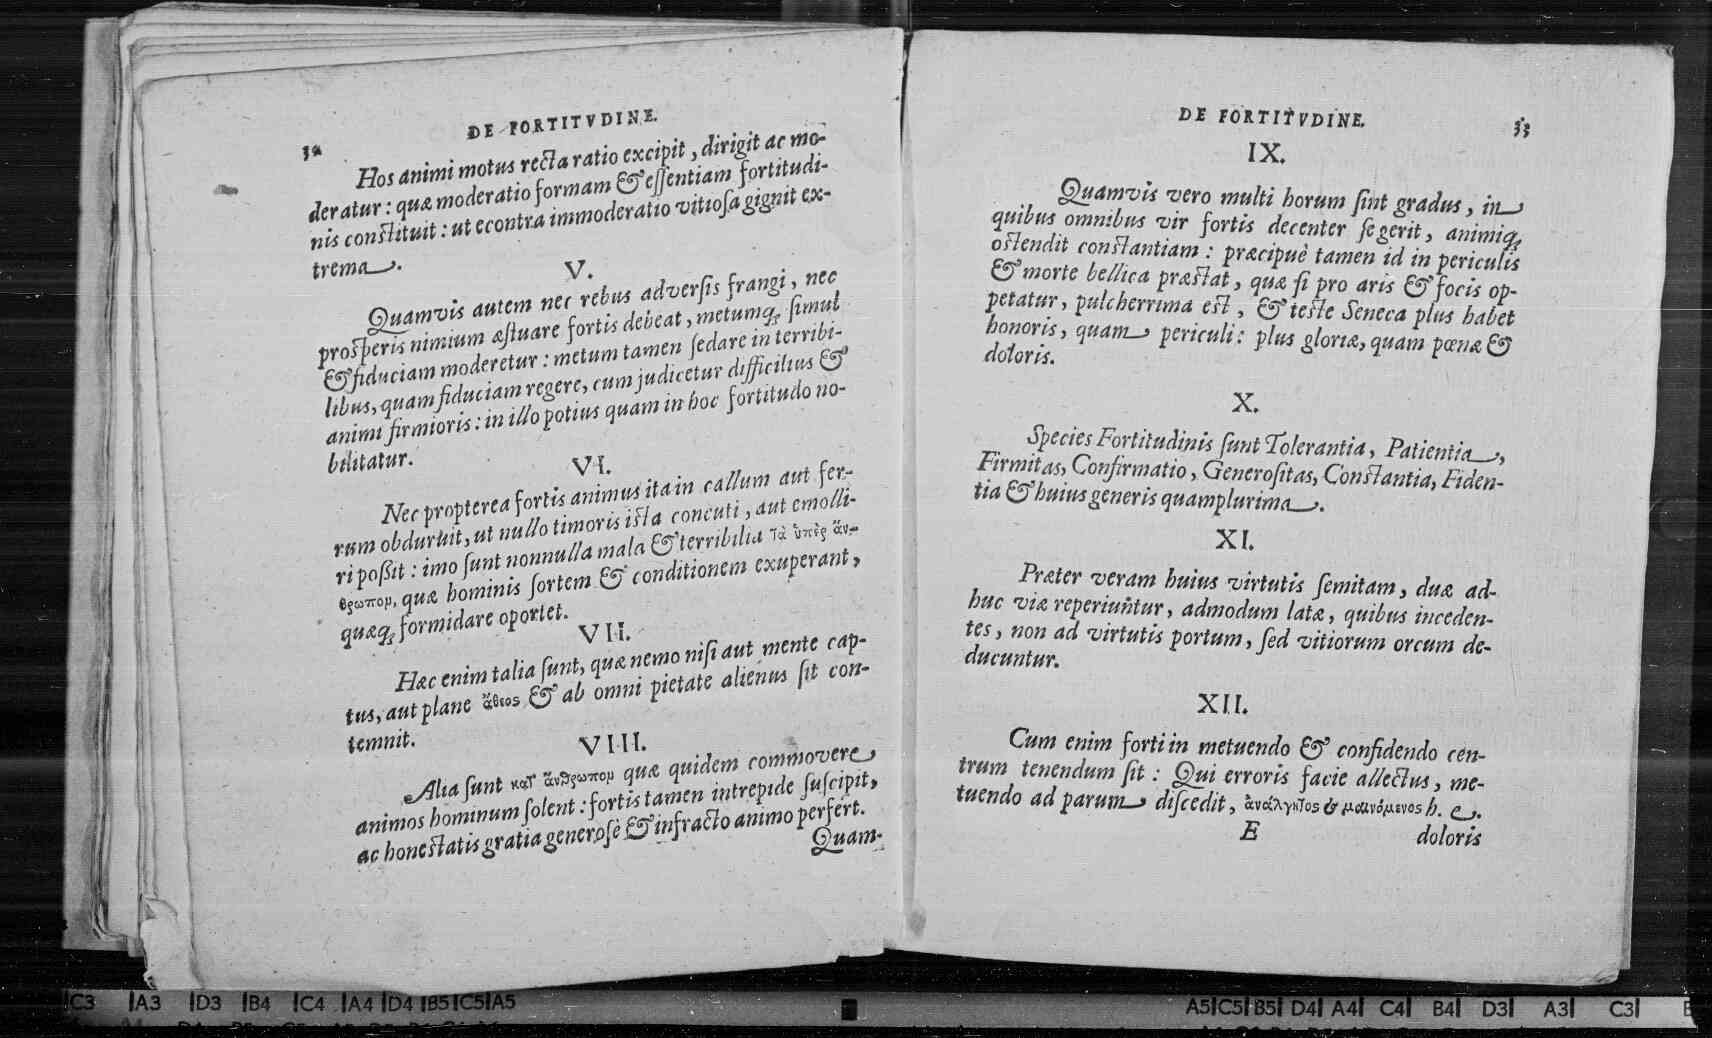 DE FORTITVDINE.
32
Hos animi motus recta ratio excipit, dirigit ac mo-
deratur: quæ moderatio formam & eſſentiam fortitudi-
nis conſtituit: ut econtra immoderatio vitioſa gignit ex-
trema.
V.
Quamvis autem nec rebus adverſis frangi, nec
proſperis nimium æſtuare fortis debeat, metumq; ſimul
& fiduciam moderetur: metum tamen ſedare in terribi-
libus, quam fiduciam regere, cum judicetur difficilius &
animi firmioris: in illo potius quam in hoc fortitudo no-
bilitatur.
VI.
Nec propterea fortis animus ita in callum aut fer-
rum obduruit, ut nullo timoris ista concuti, aut emolli-
ri poßit: imo ſunt nonnulla mala & terribilia τὰ ὑπὲρ ἄν-
θρωπομ, quæ hominis ſortem & conditionem exuperant,
quæq; formidare oportet.
VII.
Hæc enim talia ſunt, quæ nemo niſi aut mente cap-
tus, aut plane ἄθεος & ab omni pietate alienus ſit con-
temnit.
VIII.
Alia ſunt κατ' ἄνθρωπομ quæ quidem commovere
animos hominum ſolent: fortis tamen intrepide ſuſcipit,
ac honeſtatis gratia generosè & infracto animo perfert.
Quam-
DE FORTITVDINE.
33
IX.
Quamvis vero multi horum ſint gradus, in
quibus omnibus vir fortis decenter ſe gerit, animiq;
oſtendit conſtantiam: præcipuè tamen id in periculis
& morte bellica præſtat, quæ ſi pro aris & focis op-
petatur, pulcherrima eſt, & teſte Seneca plus habet
honoris, quam periculi: plus gloriæ, quam pœnæ &
doloris.
X.
Species Fortitudinis ſunt Tolerantia, Patientia,
Firmitas, Confirmatio, Generoſitas, Conſtantia, Fiden-
tia & huius generis quamplurima.
XI.
Præter veram huius virtutis ſemitam, duæ ad-
huc viæ reperiuntur, admodum latæ, quibus inceden-
tes, non ad virtutis portum, ſed vitiorum orcum de-
ducuntur.
XII.
Cum enim forti in metuendo & confidendo cen-
trum tenendum ſit: Qui erroris facie allectus, me-
tuendo ad parum diſcedit, ἀνάλγητος & μαινόμενος h. e.
E doloris
C3 A3 D3 B4 C4 A4 D4 B5 C5 A5
A5 C5 B5 D4 A4 C4 B4 D3 A3 C3